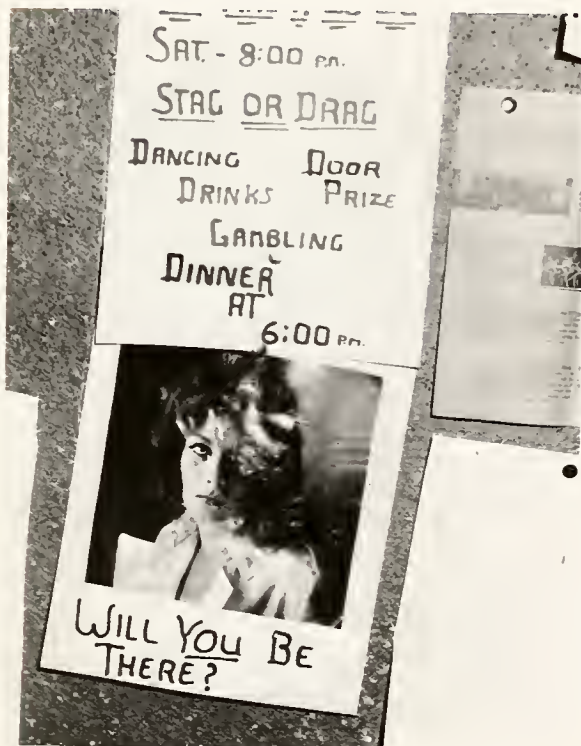 SAT. - 8:00 P.M.
STAG OR DRAG
DANCING DOOR
DRINKS PRIZE
GAMBLING
DINNER
AT
6:00 P.M.
WILL YOU BE
THERE?